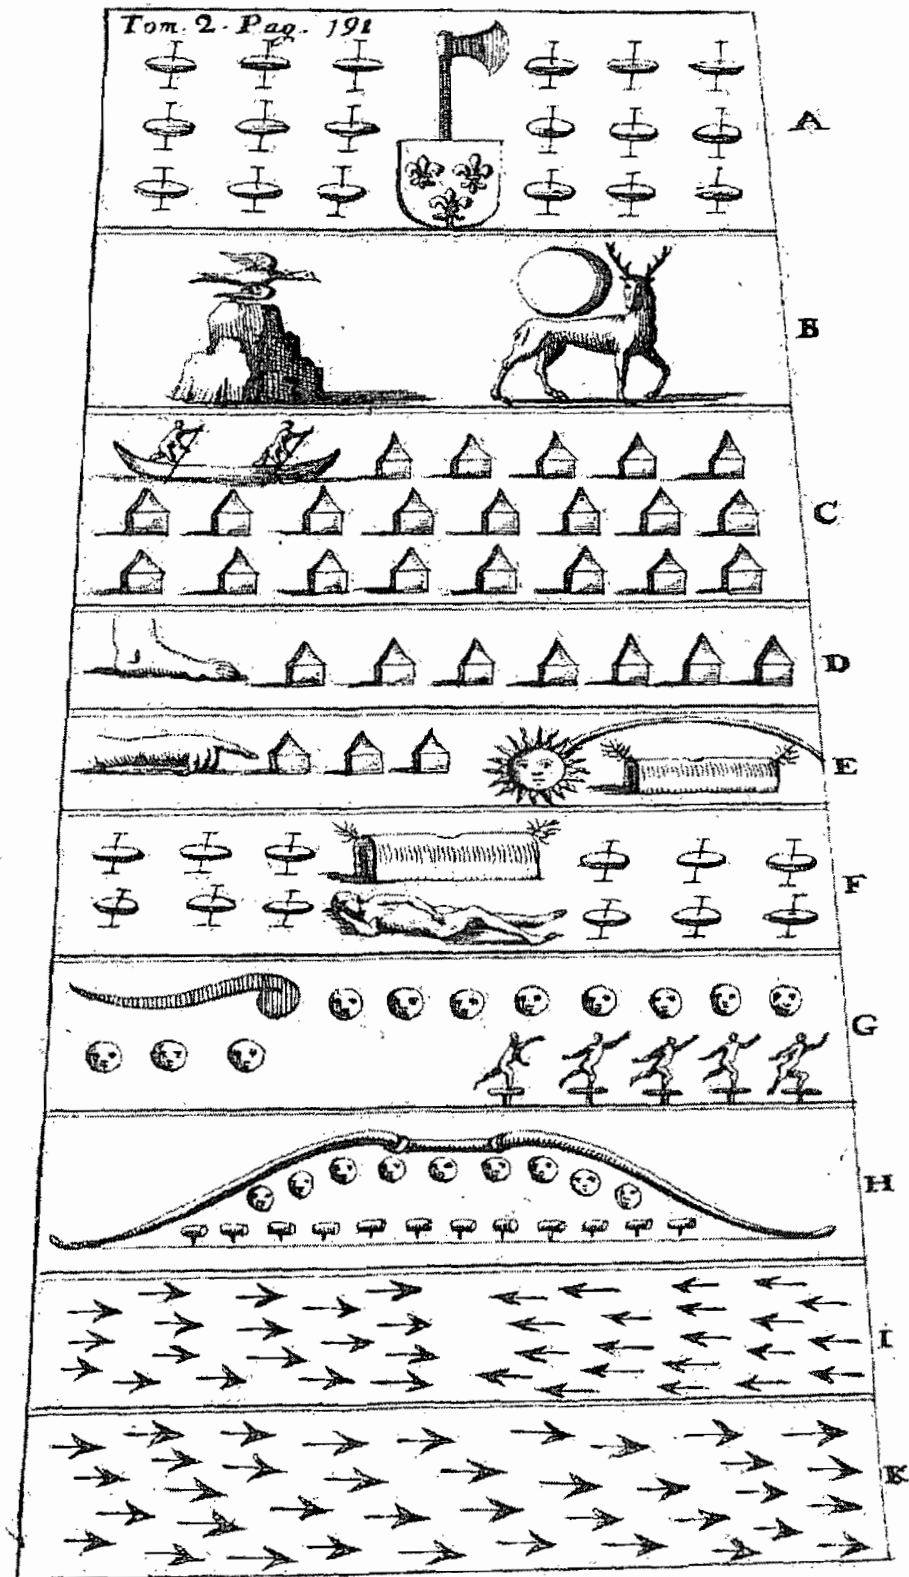 Tom. 2. Pag. 191
A
B
C
D
E
F
G
H
I
K